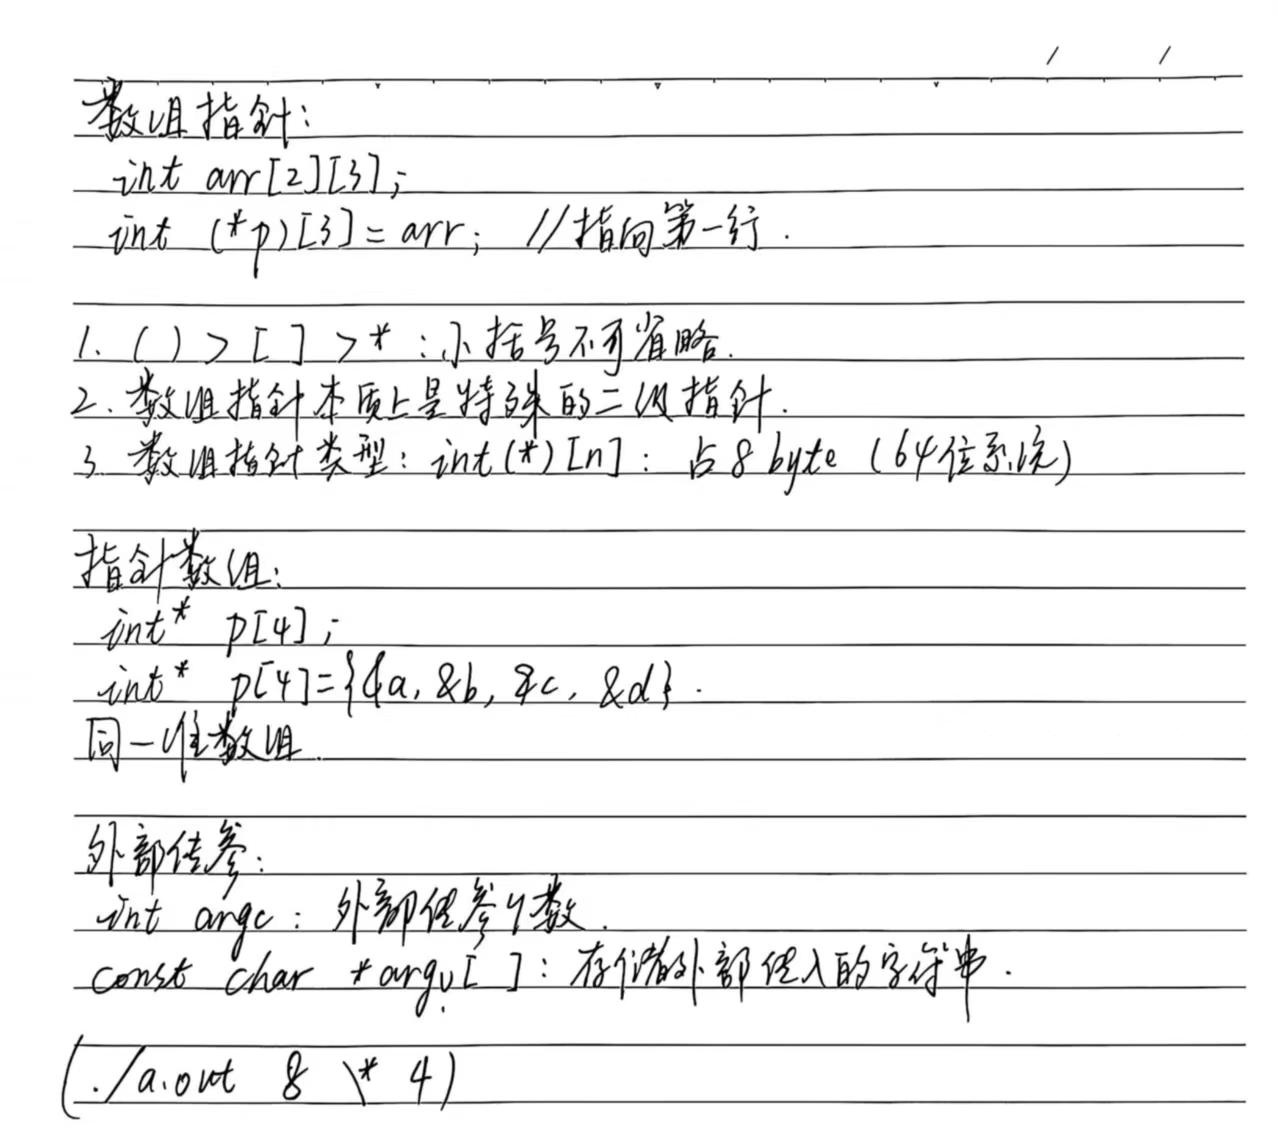 数组指针:
int arr[2][3];
int (*p)[3]=arr; //指向第一行.
1. ( ) > [ ] > * :小括号不可省略.
2. 数组指针本质上是特殊的二级指针.
3. 数组指针类型: int(*)[n]: 占8byte (64位系统)
指针数组:
int* p[4];
int* p[4]={&a, &b, &c, &d}.
同一维数组.
外部传参:
int argc: 外部传参个数.
const char *argv[ ]: 存储外部传入的字符串.
(./a.out 8 \* 4)